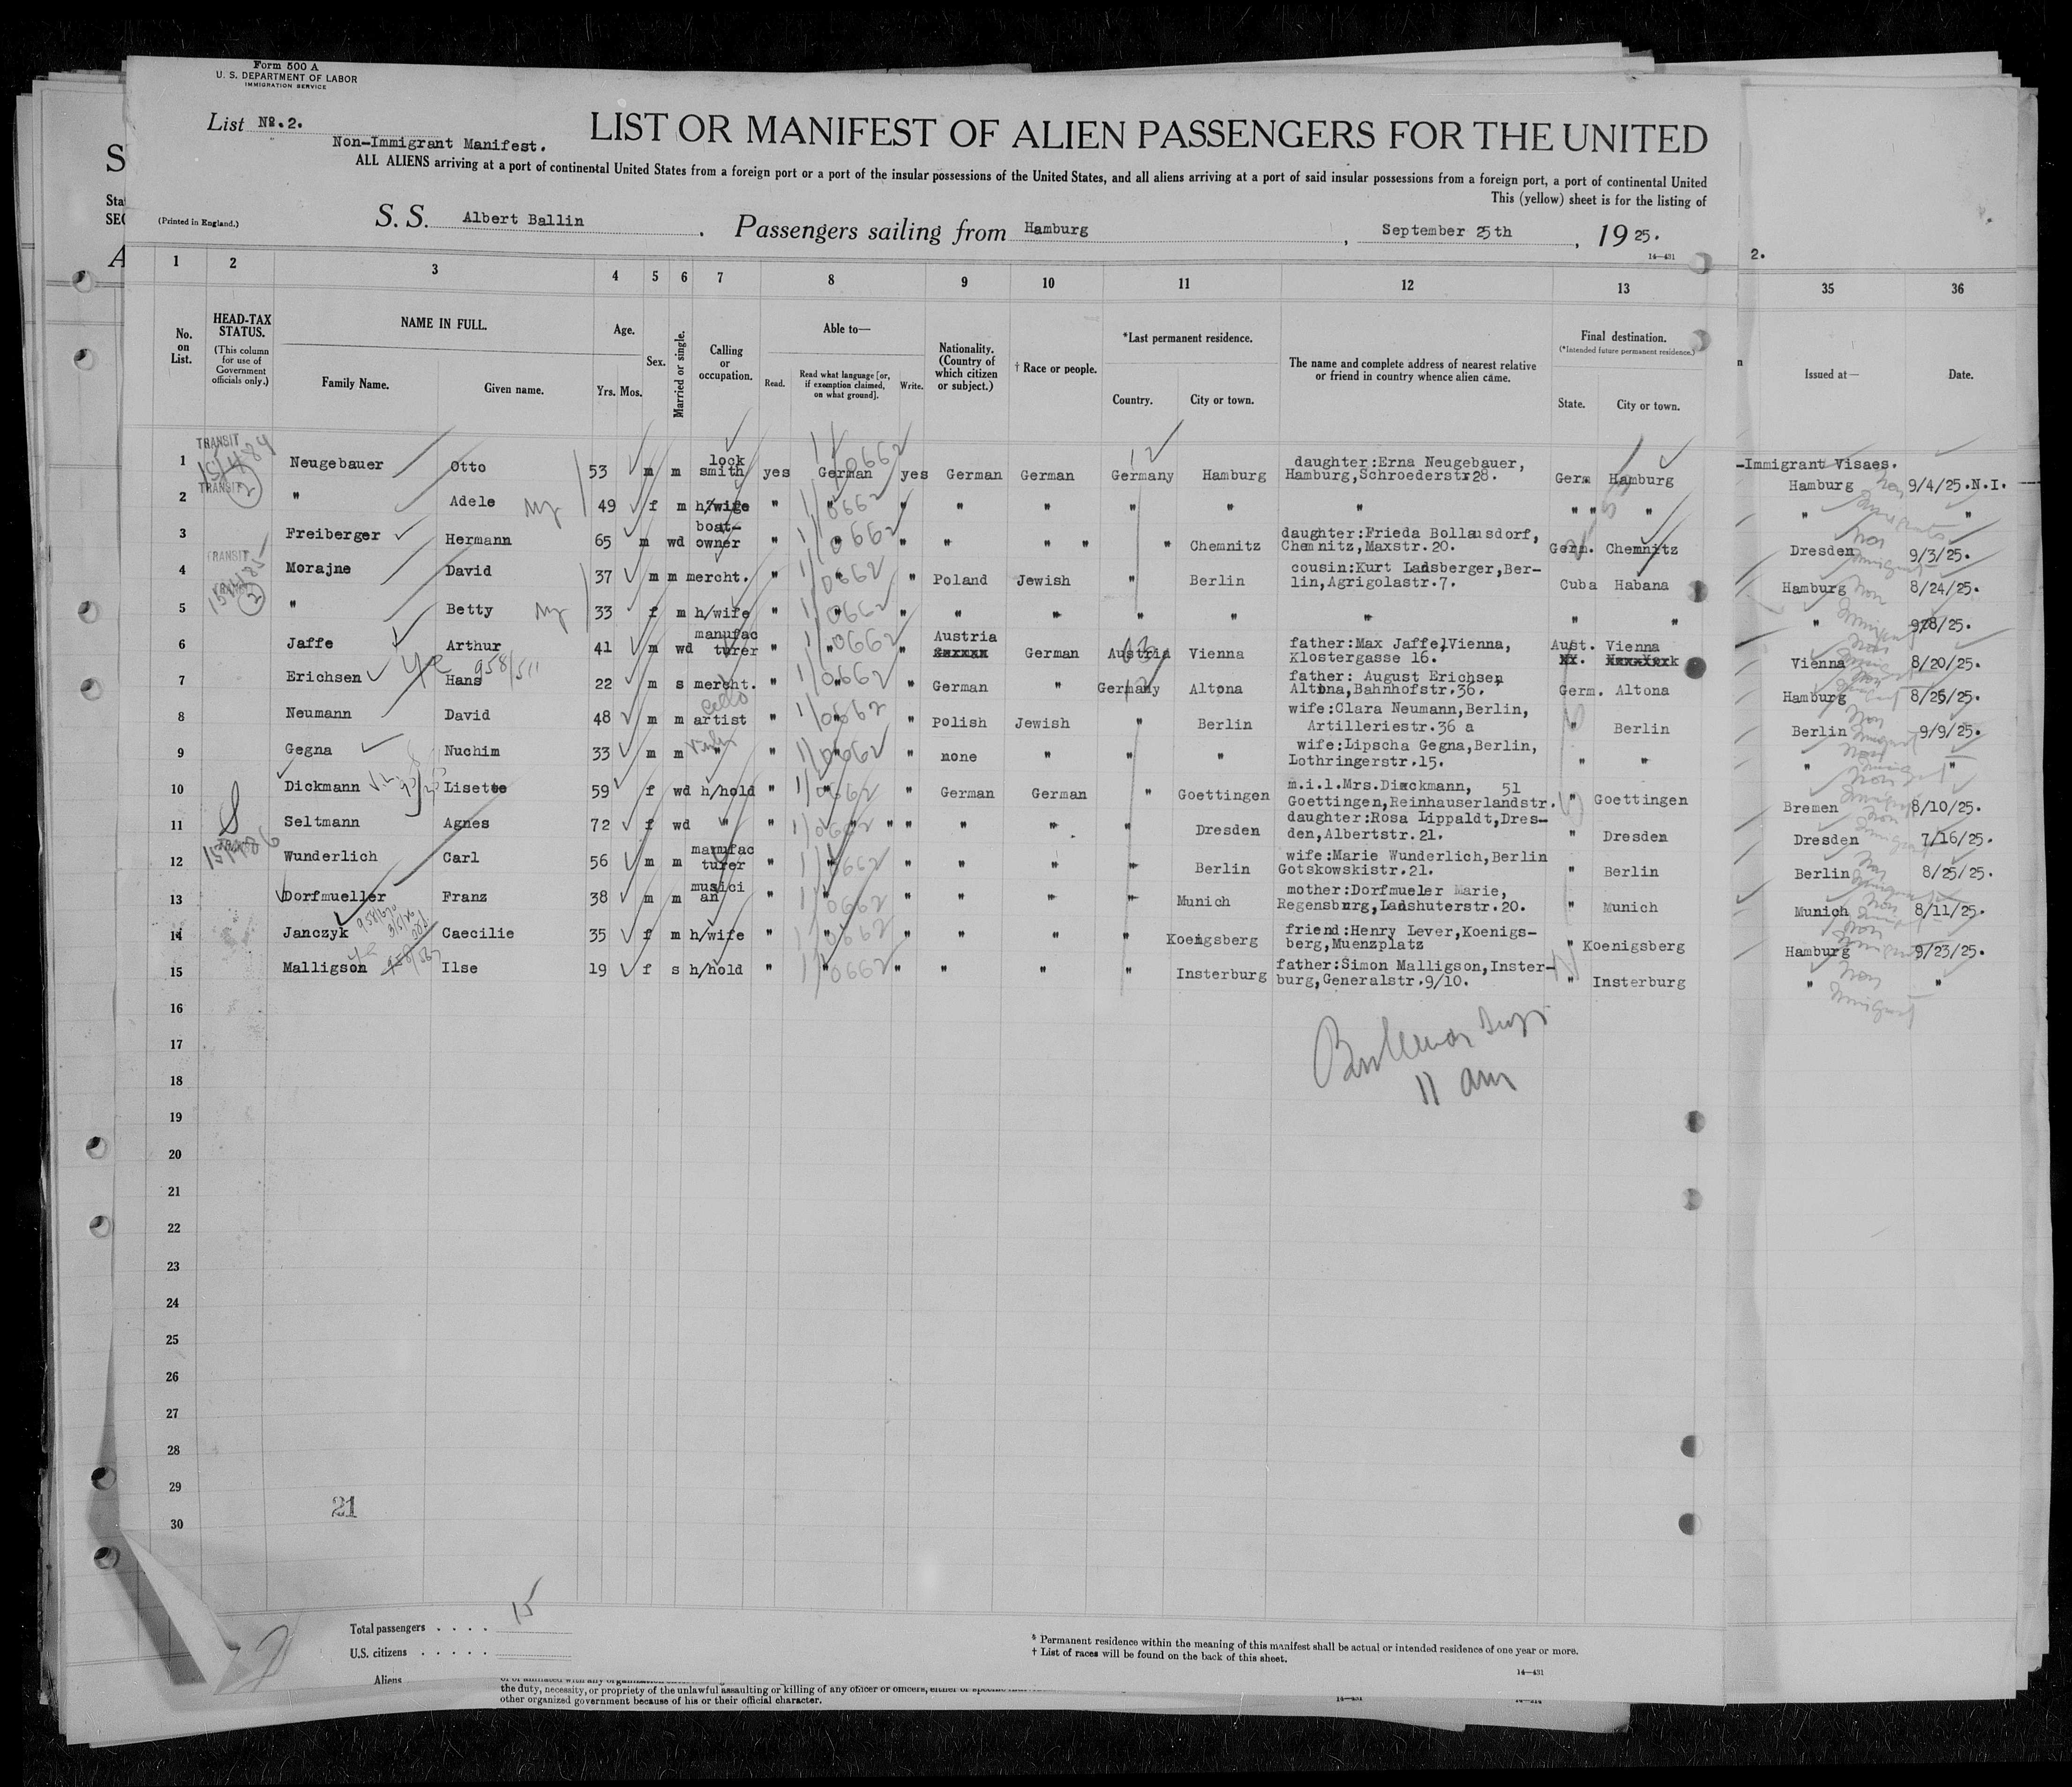 Form 500 A
U. S. DEPARTMENT OF LABOR
IMMIGRATION SERVICE
List No. 2.
Non-Immigrant Manifest.
LIST OR MANIFEST OF ALIEN PASSENGERS FOR THE UNITED
ALL ALIENS arriving at a port of continental United States from a foreign port or a port of the insular possessions of the United States, and all aliens arriving at a port of said insular possessions from a foreign port, a port of continental United
This (yellow) sheet is for the listing of
(Printed in England.)
S. S. Albert Ballin. Passengers sailing from Hamburg, September 25th, 1925.
14—431
2.
1 2 3 4 5 6 7 8 9 10 11 12 13 35 36
No. on List.
HEAD-TAX STATUS.
(This column for use of Government officials only.)
NAME IN FULL.
Family Name. Given name.
Age.
Yrs. Mos.
Sex.
Married or single.
Calling or occupation.
Able to—
Read. Read what language [or, if exemption claimed, on what ground]. Write.
Nationality. (Country of which citizen or subject.)
† Race or people.
*Last permanent residence.
Country. City or town.
The name and complete address of nearest relative or friend in country whence alien came.
Final destination.
(*Intended future permanent residence.)
State. City or town.
Issued at— Date.
-Immigrant Visaes.
TRANSIT
1 Neugebauer Otto 53 m m lock smith yes German yes German German Germany Hamburg daughter:Erna Neugebauer, Hamburg,Schroederstr.28. Germ. Hamburg Hamburg 9/4/25.N.I.
TRANSIT
2 " Adele 49 f m h/wife " " " " " " " " " " " " "
3 Freiberger Hermann 65 m wd boat- owner " " " " " " " Chemnitz daughter:Frieda Bollausdorf, Chemnitz,Maxstr.20. Germ. Chemnitz Dresden 9/3/25.
TRANSIT
4 Morajne David 37 m m mercht. " " " Poland Jewish " Berlin cousin:Kurt Landsberger,Ber- lin,Agrigolastr.7. Cuba Habana Hamburg 8/24/25.
5 " Betty 33 f m h/wife " " " " " " " " " " "
6 Jaffe Arthur 41 m wd manufac turer " " " Austria German Austria Vienna father:Max Jaffe,Vienna, Klostergasse 16. Aust. Vienna Vienna 8/20/25.
7 Erichsen Hans 22 m s mercht. " " " German " Germany Altona father: August Erichsen Altona,Bahnhofstr.36. Germ. Altona Hamburg 8/25/25.
8 Neumann David 48 m m artist " " " Polish Jewish " Berlin wife:Clara Neumann,Berlin, Artilleriestr.36 a " Berlin Berlin 9/9/25.
9 Gegna Nuchim 33 m m " " " " none " " " wife:Lipscha Gegna,Berlin, Lothringerstr.15. " " " "
10 Dickmann Lisette 59 f wd h/hold " " " German German " Goettingen m.i.l.Mrs.Dieckmann, 51 Goettingen,Reinhauserlandstr. " Goettingen Bremen 8/10/25.
11 Seltmann Agnes 72 f wd " " " " " " " " Dresden daughter:Rosa Lippaldt,Dres- den,Albertstr.21. " Dresden Dresden 7/16/25.
12 Wunderlich Carl 56 m m manufac turer " " " " " " Berlin wife:Marie Wunderlich,Berlin Gotskowskistr.21. " Berlin Berlin 8/25/25.
13 Dorfmueller Franz 38 m m musici an " " " " " " Munich mother:Dorfmueler Marie, Regensburg,Landshuterstr.20. " Munich Munich 8/11/25.
14 Janczyk Caecilie 35 f m h/wife " " " " " " Koenigsberg friend:Henry Lever,Koenigs- berg,Muenzplatz " Koenigsberg Hamburg 9/23/25.
15 Malligson Ilse 19 f s h/hold " " " " " " Insterburg father:Simon Malligson,Inster- burg,Generalstr.9/10. " Insterburg " "
16
17
11 am
18
19
20
21
22
23
24
25
26
27
28
29
21
30
Total passengers . . . . 15
U.S. citizens . . . . .
Aliens
* Permanent residence within the meaning of this manifest shall be actual or intended residence of one year or more.
† List of races will be found on the back of this sheet.
14—431
the duty, necessity, or propriety of the unlawful assaulting or killing of any officer or officers, either of
other organized government because of his or their official character.